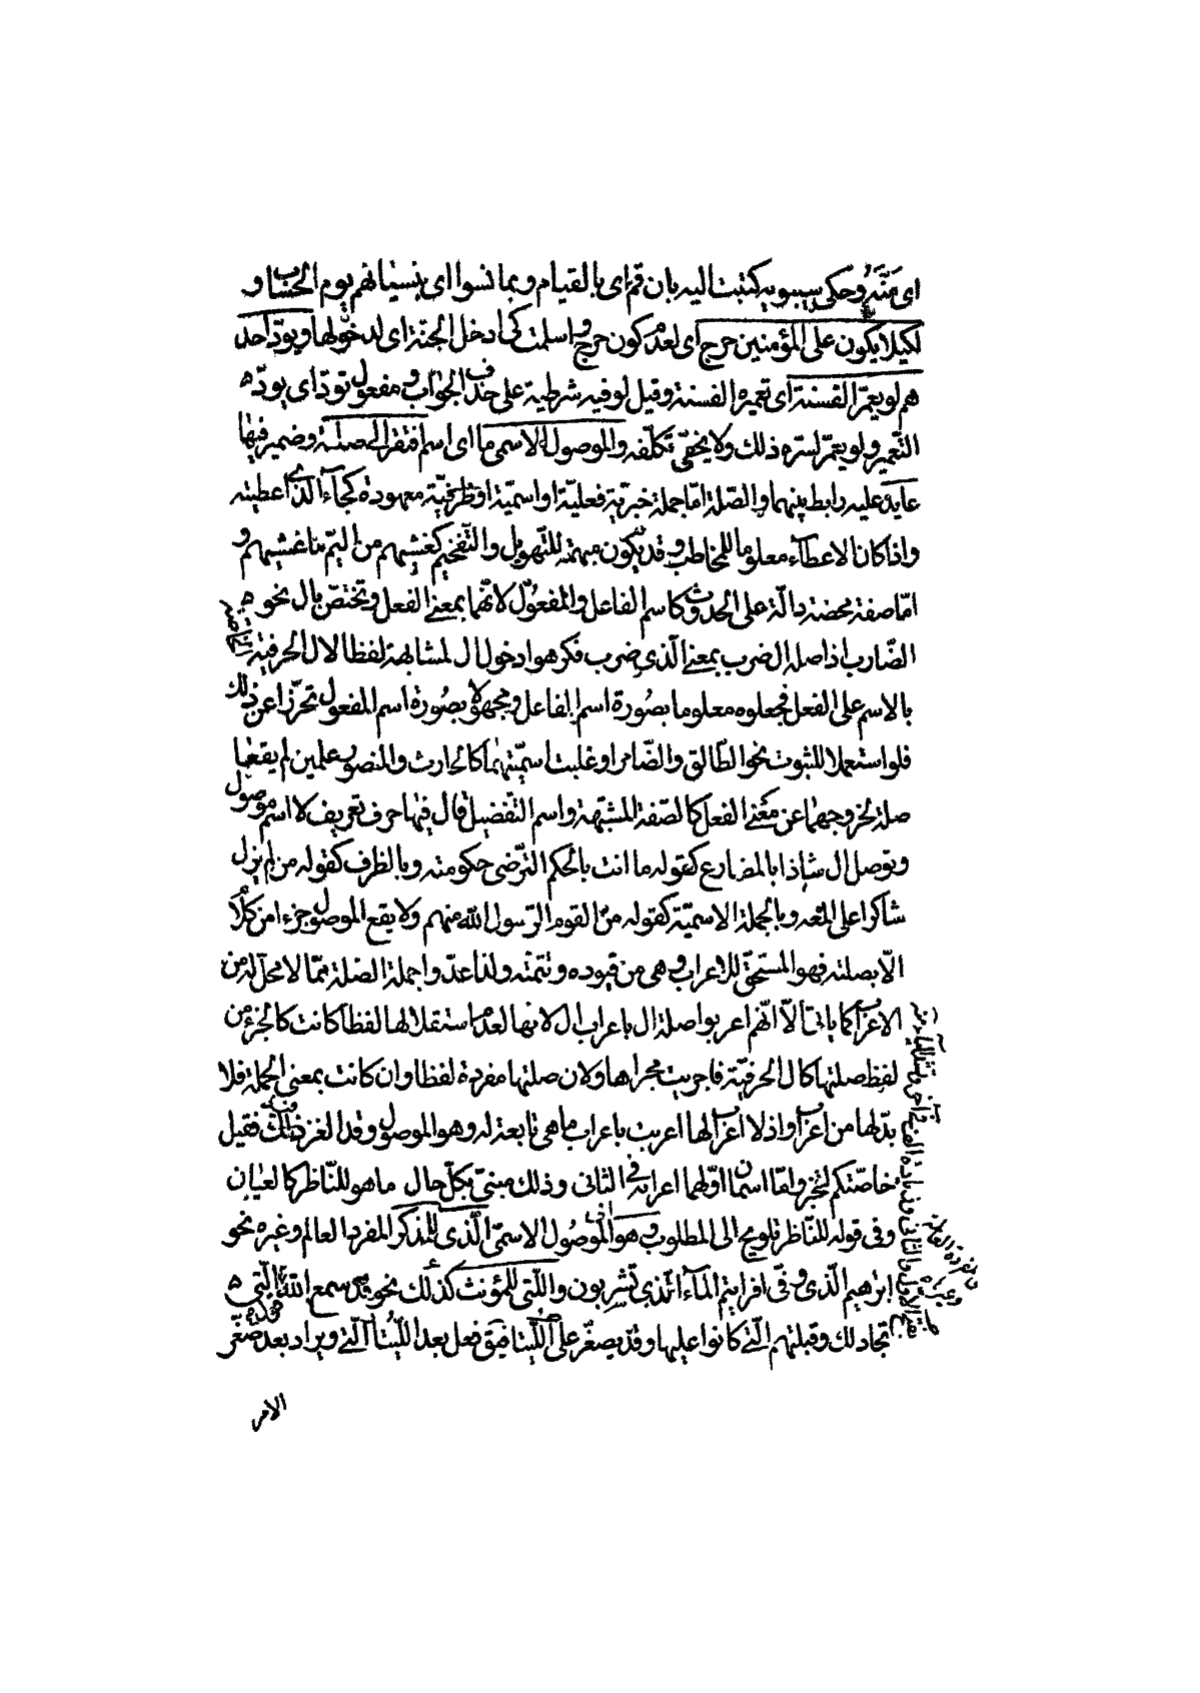 اى مَنَّهُ وحكى سيبويه كتبت اليه بان قم اى بالقيام وبما نسوا اى بنسيانهم يوم الحساب و
لكيلا يكون على المؤمنين حرج اى لعدم كون حرج واسلمت كى ادخل الجنة اى لدخولها ويودّ احد
هم لو يعمّر الف سنة اى تعميره الف سنة وقيل لو فيه شرطية على حذف الجواب ومفعول تودّ اى يودّ
التّعمير ولو يعمّر لسره ذلك ولا يخفى تكلّفه والموصول الاسمى ما اى اسم افتقر الى صلة وضمير فيها
عايد عليه رابط بينهما والصّلة امّا جملة خبريّة فعليّة او اسميّة او ظرفيّة معهودة كجاء الذى اعطيته
واذا كان الاعطاء معلوما للمخاطب وقد يكون مبهمة للتّهويل والتّفخيم كغشيهم من اليمّ ما غشيهم و
امّا صفة محضة دالّة على الحدوث كاسم الفاعل والمفعول لانّهما بمعنى الفعل وتختصّ بال نحو
الضّارب اذ اصله الضرب بمعنى الّذى ضرب فكرهوا دخول ال لمشابهة لفظا لال الحرفية
بالاسم على الفعل فجعلوه معلوما بصورة اسم الفاعل ومجهولا بصورة اسم المفعول تحرّزا عن ذلك
فلو استعملا للثبوت نحو الطّالق والضّامر او غلبت اسميّتهما كالحارث والمنصور علمين لم يقعا
صلة لخروجهما عن معنى الفعل كالصّفة المشبّهة واسم التّفضيل قال فيها حرف تعريف لا اسم موصول
وتوصل ال شاذا بالمضارع كقوله ما انت بالحكم الترضى حكومته وبالظرف كقوله من لم يزل
شاكرا على المعه وبالجملة الاسميّة كقوله من القوم الرّسول الله منهم ولا يقع الموصول جزءا من كلام
الّا بصلته فهو المستحقّ للاعراب وهى من قيوده وتتمته ولذا عدّوا جملة الصّلة ممّا لا محل له من
الاعراب كما ياتى الّا انّهم اعربوا صلة ال باعراب ال لانها لعدم استقلالها لفظا كانت كالجزء من
لفظ صلتها كال الحرفيّة فاجريت مجراها ولان صلتها مفردة لفظا وان كانت بمعنى الجملة فلا
بدّ لها من اعراب واذ لا اعراب لها اعربت باعراب ما هى تابعة له وهو الموصول وقد الغز ذلك فقيل
خاصّتكم لتخبروا اسمان اوّلهما اعرابه فى الثانى وذلك مبنىّ بكلّ حال ما هو للنّاظر كالعيان
وفى قوله للنّاظر تلويح الى المطلوب وهو الموصول الاسمىّ الّذى للمذكر المفرد العالم وغيره نحو
ابرهيم الّذى وفّى افرايتم الماء الّذى تشربون والّتى للمؤنث كذلك نحو قد سمع الله قول الّتى
تجادلك وقبلتهم الّتى كانوا عليها وقد يصغّر على اللّتيّا فيق فعل بعد اللّتيّا والّتى ويراد بعد صغّر
الامر